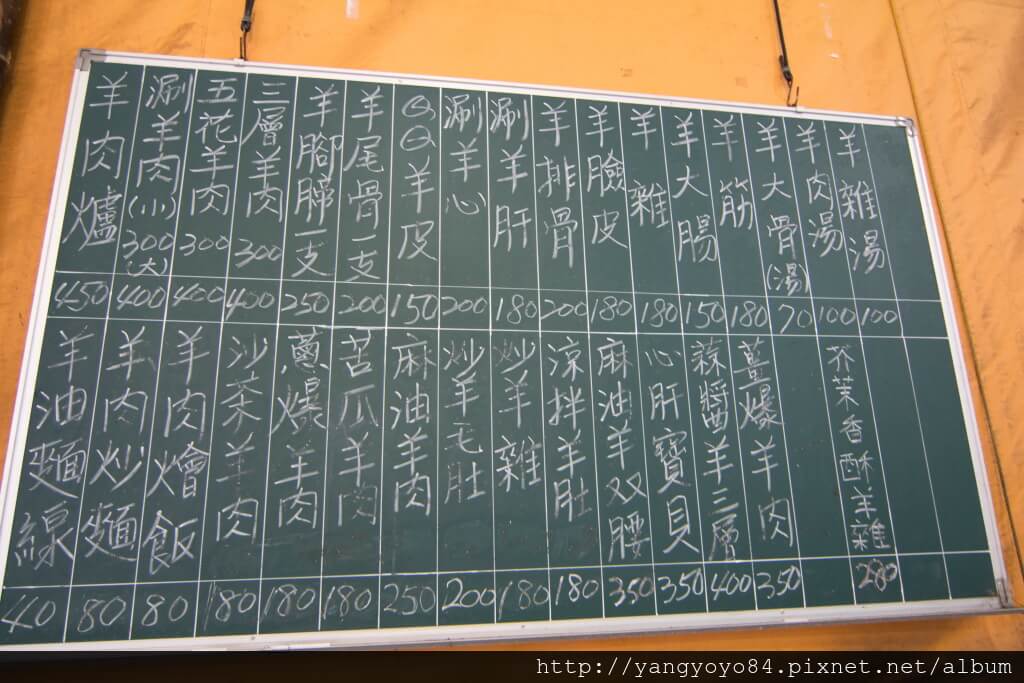 羊肉爐 450
涮羊肉(小)300(大) 400
五花羊肉 300 400
三層羊肉 300 400
羊腳一支 250
羊尾骨一支 200
QQ羊皮 150
涮羊心 200
涮羊肝 180
羊排骨 200
羊臉皮 180
羊雜 180
羊大腸 150
羊筋 180
羊大骨(湯) 70
羊肉湯 100
羊雜湯 100
羊油麵線 40
羊肉炒麵 80
羊肉燴飯 80
沙茶羊肉 180
蔥爆羊肉 180
苦瓜羊肉 180
麻油羊肉 250
炒羊毛肚 200
炒羊雜 180
涼拌羊肚 180
麻油羊双腰 350
心肝寶貝 350
蒜醬羊三層 400
薑爆羊肉 350
芥茉香酥羊雜 280
http://yangyoyo84.pixnet.net/album